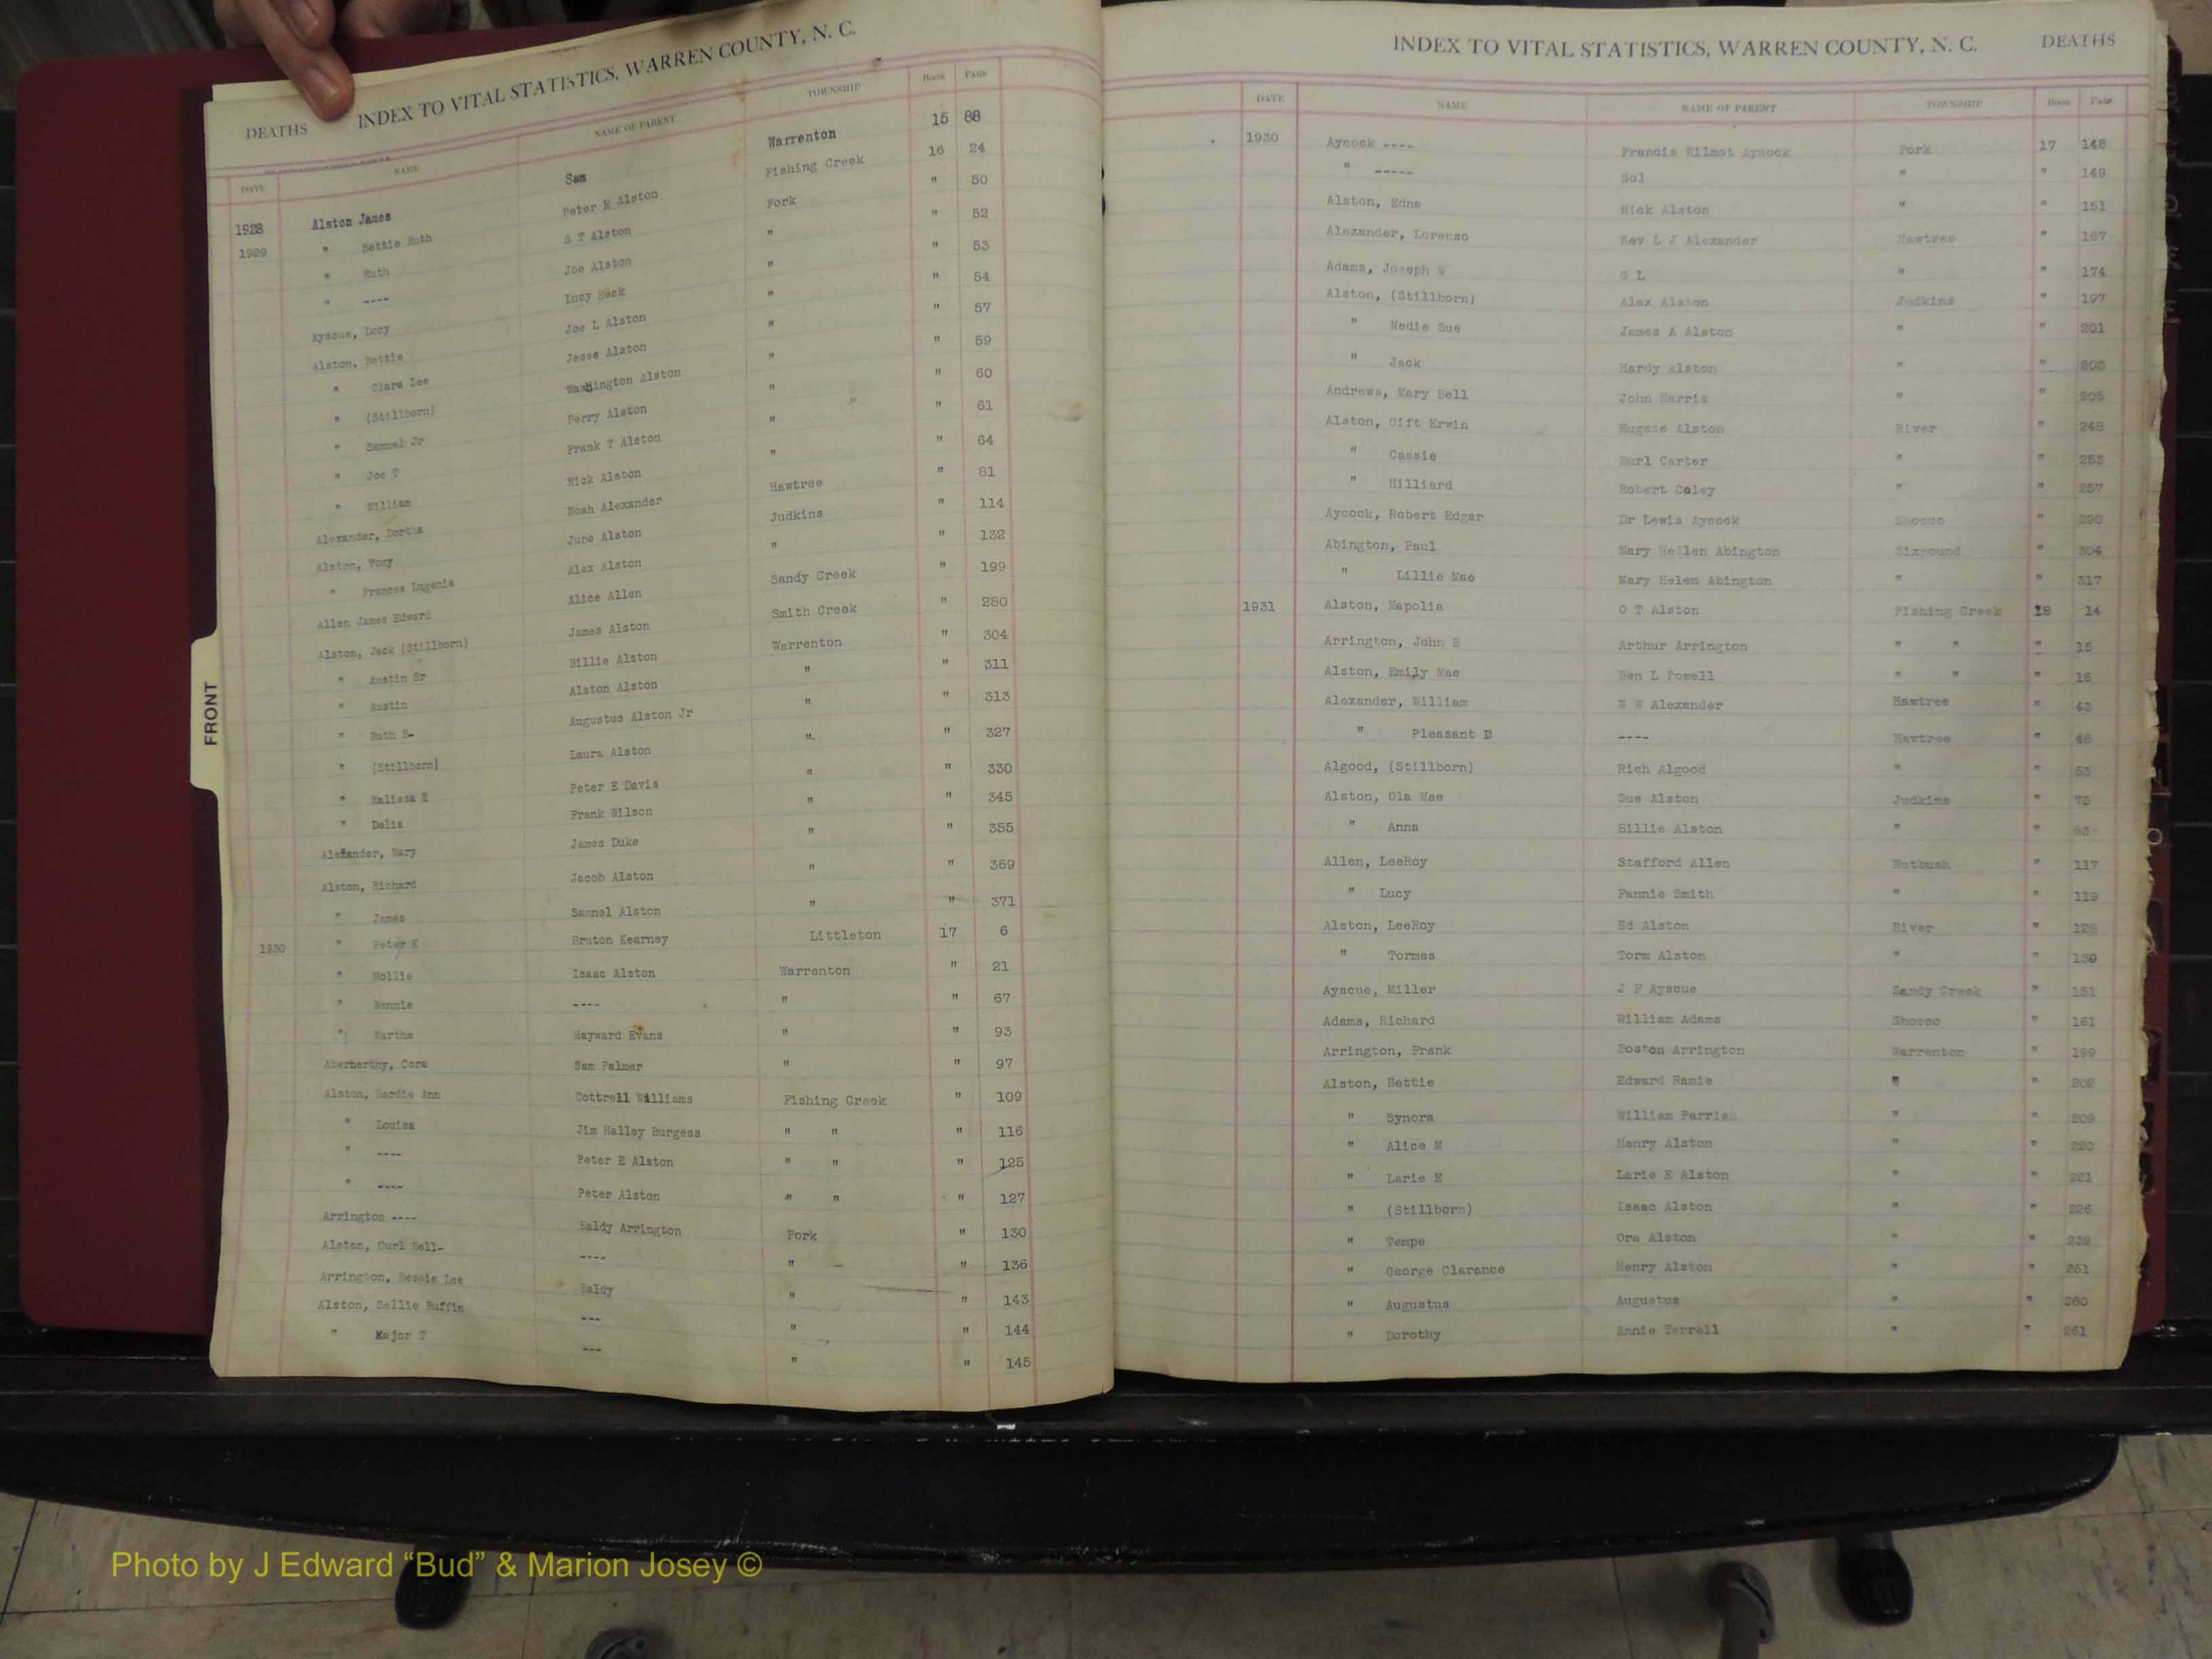 DEATHS INDEX TO VITAL STATISTICS, WARREN COUNTY, N. C.
DATE NAME NAME OF PARENT TOWNSHIP Book Page
1928 Alston James Sam Warrenton 15 88
1929 " Bettie Ruth Peter E Alston Fishing Creek 16 24
" Ruth S T Alston Fork " 50
" ---- Joe Alston " " 52
Ayscue, Lucy Lucy Heck " " 53
Alston, Bettie Joe L Alston " " 54
" Clara Lee Jesse Alston " " 57
" (Stillborn) Washington Alston " " 59
" Samuel Jr Perry Alston " " 60
" Joe T Frank T Alston " " 61
" William Nick Alston " " 64
Alexander, Dortha Noah Alexander Hawtree " 81
Alston, June Alston Judkins " 114
" Frances Eugenia Alex Alston " " 132
Allen James Edward Alice Allen Sandy Creek " 199
Alston, Jack (Stillborn) James Alston Smith Creek " 280
" Austin Sr Billie Alston Warrenton " 304
" Austin Alston Alston " " 311
" Ruth B- Augustus Alston Jr " " 313
" (Stillborn) Laura Alston " " 327
" Malissa E Peter E Davis " " 330
" Delia Frank Wilson " " 345
Alexander, Mary James Duke " " 355
Alston, Richard Jacob Alston " " 369
" James Samuel Alston " " 371
1930 " Peter K Bruton Kearney Littleton 17 6
" Mollie Isaac Alston Warrenton " 21
" Nannie ---- " " 67
" Martha Hayward Evans " " 93
Abernarthy, Cora Sam Palmer " " 97
Alston, Hardie Ann Cottrell Williams Fishing Creek " 109
" Louisa Jim Halley Burgess " " " 116
" ---- Peter E Alston " " " 125
" ---- Peter Alston " " " 127
Arrington ---- Baldy Arrington Fork " 130
Alston, Curl Bell- ---- " " 136
Arrington, Bessie Lee Baldy " " 143
Alston, Sallie Ruffin --- " " 144
" Major T --- " " 145
FRONT
INDEX TO VITAL STATISTICS, WARREN COUNTY, N. C. DEATHS
DATE NAME NAME OF PARENT TOWNSHIP Book Page
1930 Aycock ---- Francis Wilmot Aycock Fork 17 148
" ----- Sol " " 149
Alston, Edna Nick Alston " " 151
Alexander, Lorenso Rev L J Alexander Hawtree " 167
Adams, Joseph W G L " " 174
Alston, (Stillborn) Alex Alston Judkins " 197
" Nedie Sue James A Alston " " 201
" Jack Hardy Alston " " 203
Andrews, Mary Bell John Harris " " 205
Alston, Gift Erwin Eugene Alston River " 248
" Cassie Burl Carter " " 253
" Hilliard Robert Coley " " 257
Aycock, Robert Edgar Dr Lewis Aycock Shocco " 290
Abington, Paul Mary Hellen Abington Sixpound " 304
" Lillie Mae Mary Helem Abington " " 317
1931 Alston, Napolia O T Alston Fishing Creek 18 14
Arrington, John B Arthur Arrington " " " 15
Alston, Emily Mae Ben L Powell " " " 16
Alexander, William N W Alexander Hawtree " 43
" Pleasant D ---- Hawtree " 48
Algood, (Stillborn) Rich Algood " " 53
Alston, Ola Mae Sue Alston Judkins " 75
" Anna Billie Alston " " 83
Allen, LeeRoy Stafford Allen Nutbush " 117
" Lucy Fannie Smith " " 119
Alston, LeeRoy Ed Alston River " 128
" Tormes Torm Alston " " 139
Ayscue, Miller J F Ayscue Sandy Creek " 151
Adams, Richard William Adams Shocco " 161
Arrington, Frank Boston Arrington Warrenton " 199
Alston, Bettie Edward Ramie " " 202
" Synora William Parrish " " 209
" Alice M Henry Alston " " 220
" Larie E Larie E Alston " " 221
" (Stillborn) Isaac Alston " " 226
" Tempe Ora Alston " " 239
" George Clarance Henry Alston " " 251
" Augustus Augustus " " 260
" Dorothy Annie Terrell " " 261
Photo by J Edward “Bud” & Marion Josey ©